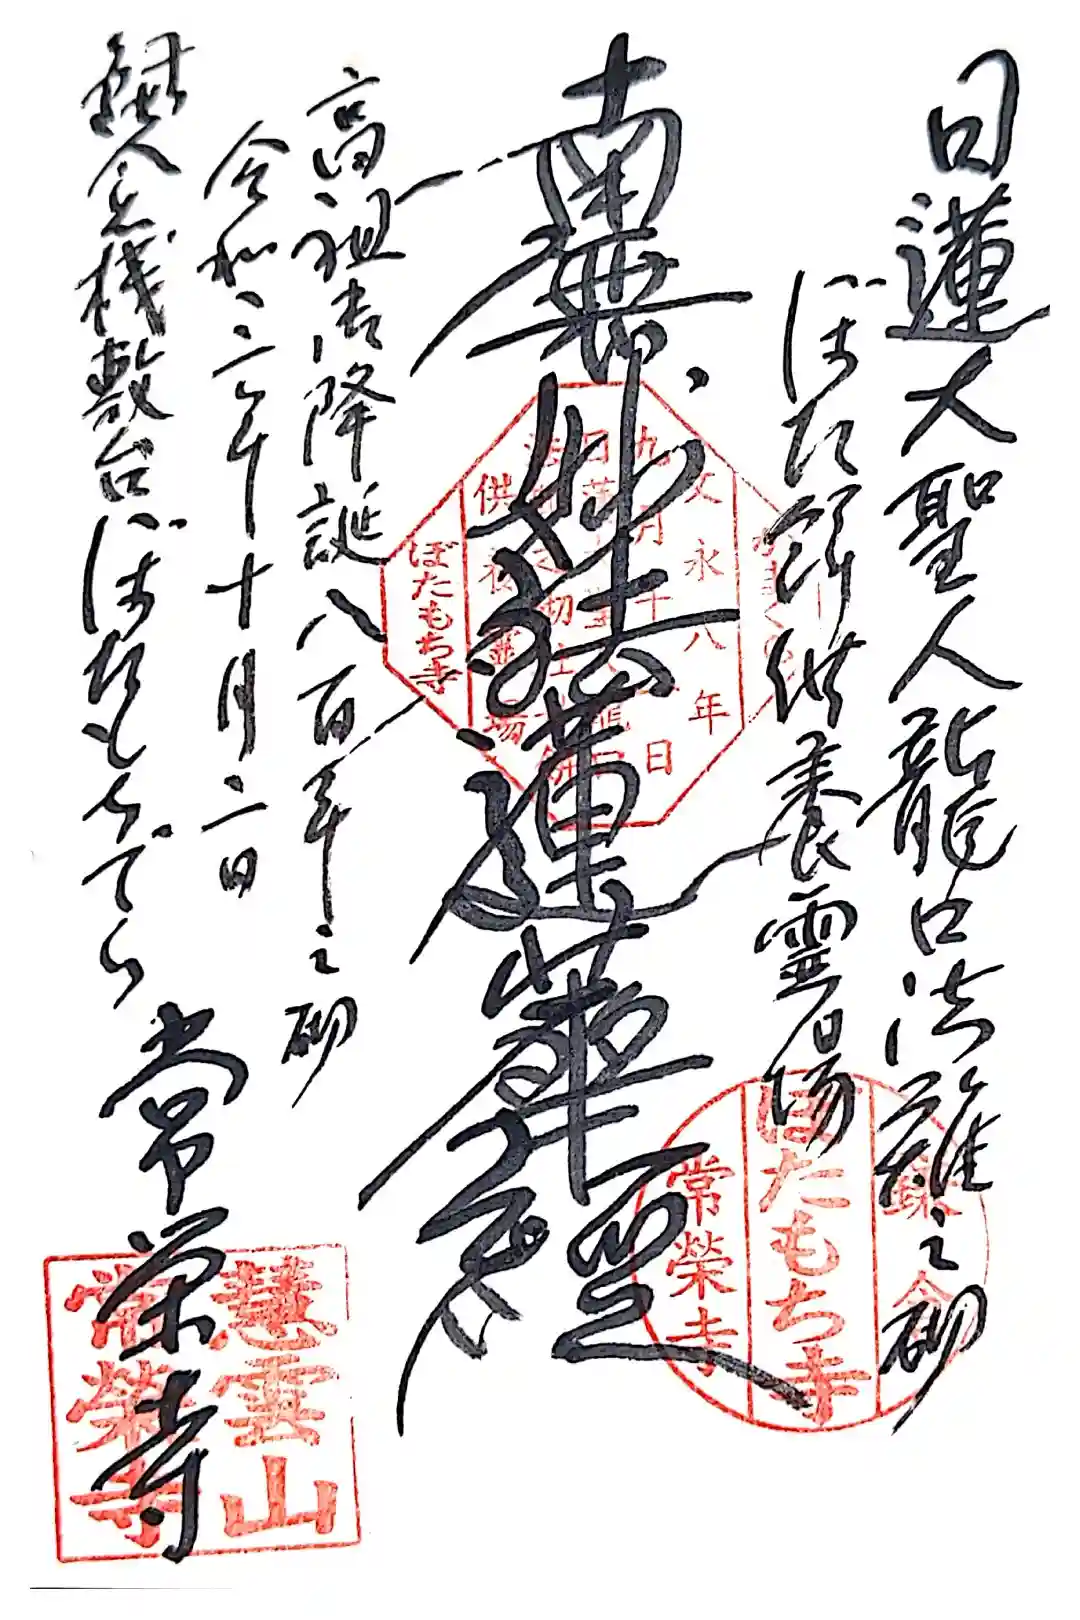 日蓮大聖人龍口法難之砌
ぼた餅供養霊場
南無妙法蓮華経
高祖大士降誕八百年之砌
令和二年十月二日
鎌倉桟敷台ぼたもちでら
常栄寺
文永八年
九月十二日
供養霊場
ぼたもち寺
鎌倉
ぼたもち寺
常榮寺
慧雲山
常榮寺